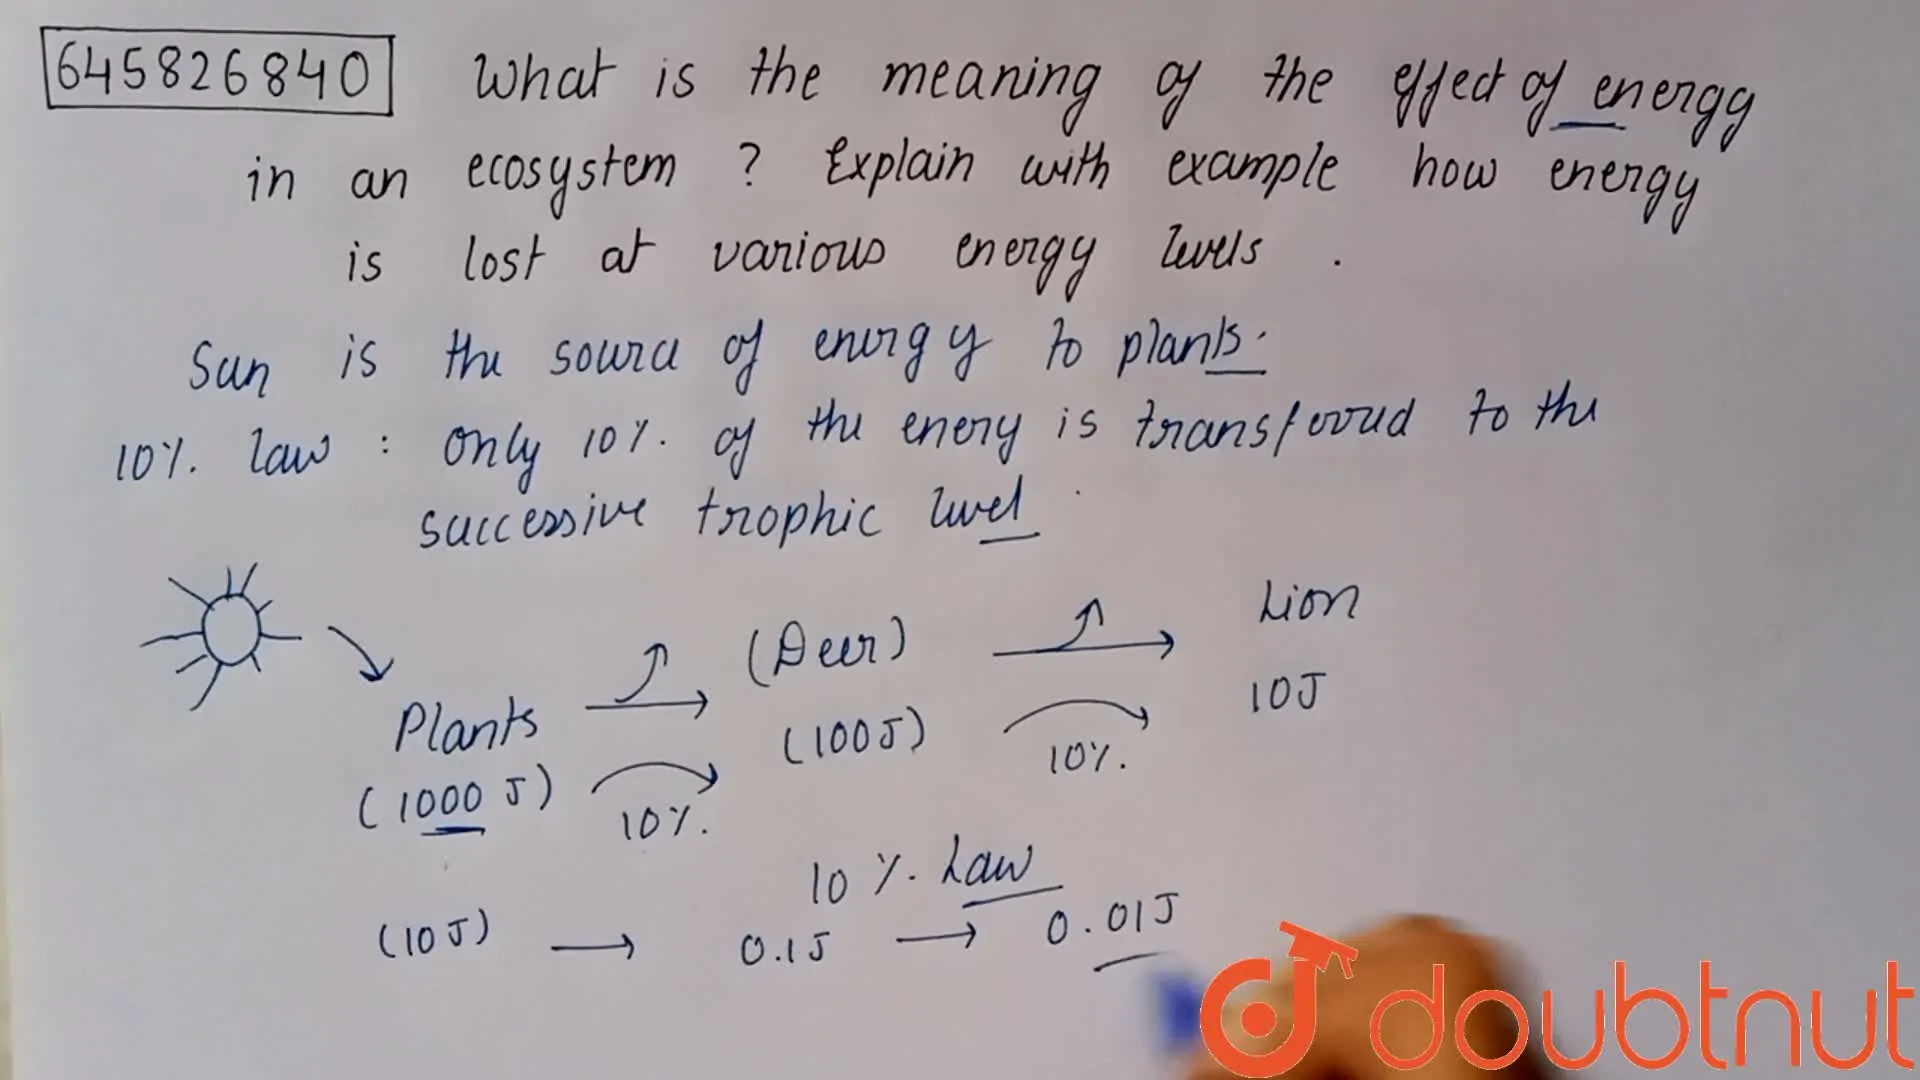 645826840 What is the meaning of the effect of energy
in an ecosystem ? Explain with example how energy
is lost at various energy levels .
Sun is the source of energy to plants.
10%. law : only 10%. of the enery is transferred to the
successive trophic level
Lion
(Deer)
10J
Plants
(100J)
10%.
(1000 J)
10%.
10 %. Law
(10J) → 0.1J → 0.01J
doubtnut